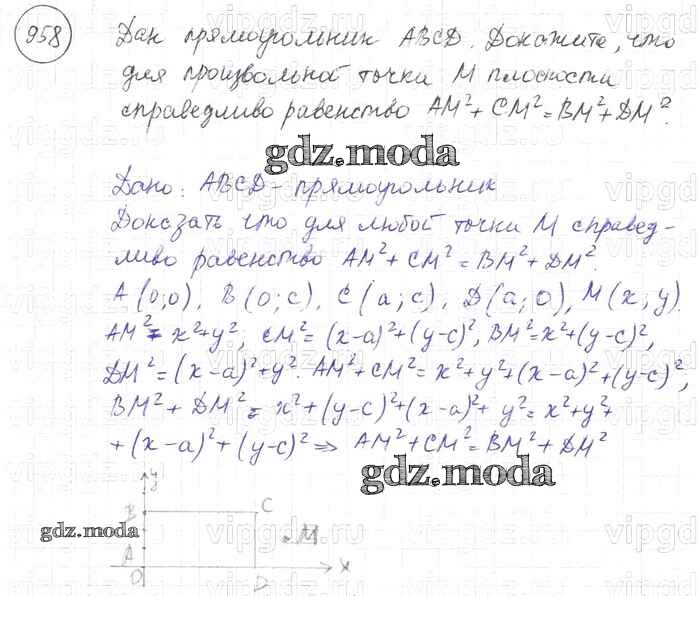 958
Дан прямоугольник ABCD. Докажите, что
для произвольной точки M плоскости
справедливо равенство AM²+CM²=BM²+DM².
gdz.moda
Дано: ABCD-прямоугольник
Доказать что для любой точки M справед-
ливо равенство AM²+CM²=BM²+DM².
A(0;0), B(0;c), C(a;c), D(a;0), M(x;y).
AM²=x²+y², CM²=(x-a)²+(y-c)², BM²=x²+(y-c)²,
DM²=(x-a)²+y². AM²+CM²=x²+y²+(x-a)²+(y-c)²,
BM²+DM²=x²+(y-c)²+(x-a)²+y²=x²+y²+
+(x-a)²+(y-c)²⇒ AM²+CM²=BM²+DM²
gdz.moda
y
B C
gdz.moda
M
A
O D x
vipgdz.ru